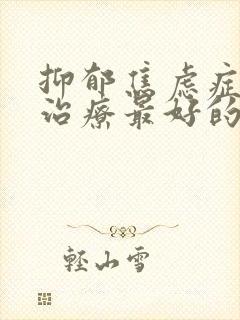 抑郁焦虑症
治療最好的
輕山雪